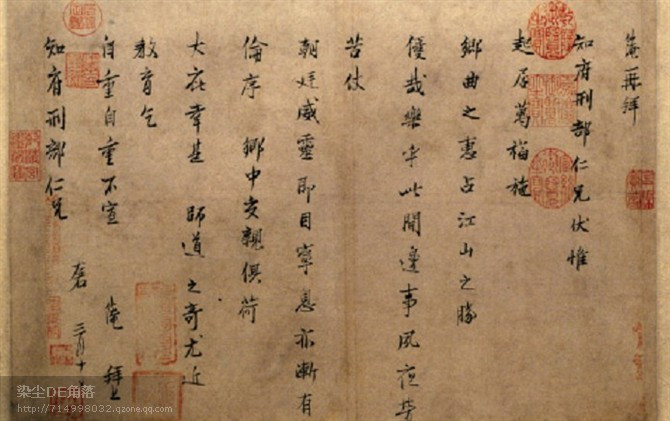 淹再拜
知府刑部仁兄伏惟
起居萬福施
鄉曲之惠占江山之勝
優哉樂乎此間邊事夙夜勞
苦仗
朝廷威靈即目寧息亦漸有
倫序 鄉中交親俱荷
大庇幸甚 師道之奇尤近
教育乞
自重自重不宣 淹 拜上
知府刑部仁兄
三月十
染尘DE角落
http://714998032.qzone.qq.com